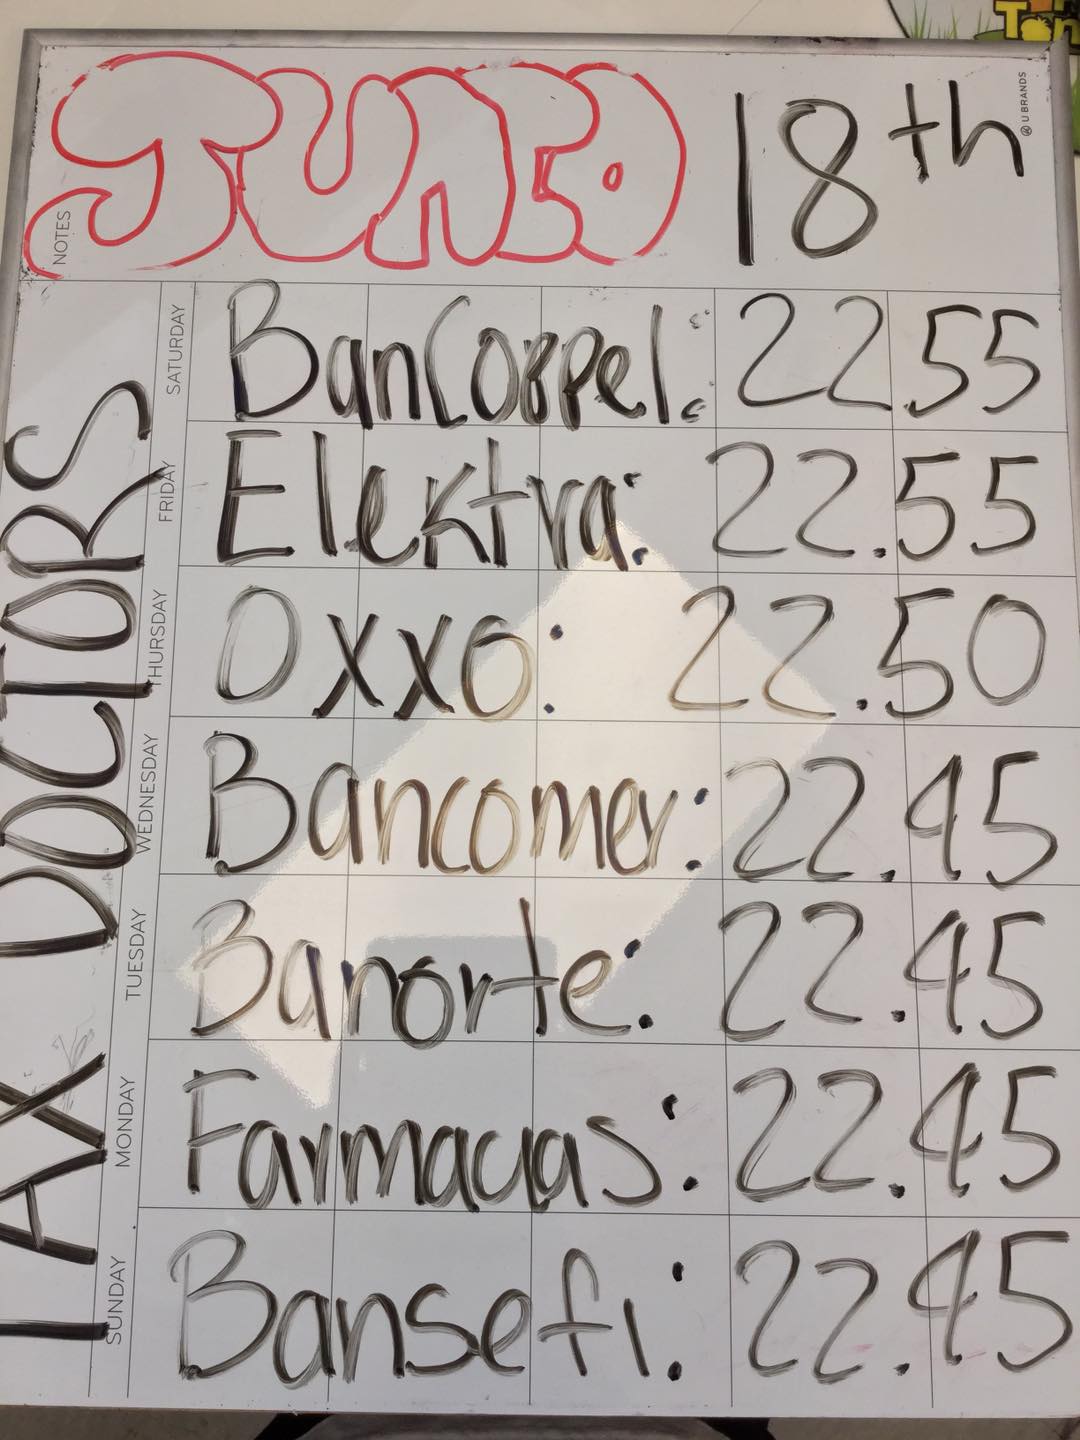 JUNEO 18th
NOTES
U BRANDS
TAX DOCTORS
SATURDAY
BanCoppel: 22.55
FRIDAY
Elektra: 22.55
THURSDAY
Oxxo: 22.50
WEDNESDAY
Bancomer: 22.45
TUESDAY
Banorte: 22.45
MONDAY
Farmacias: 22.45
SUNDAY
Bansefi: 22.45